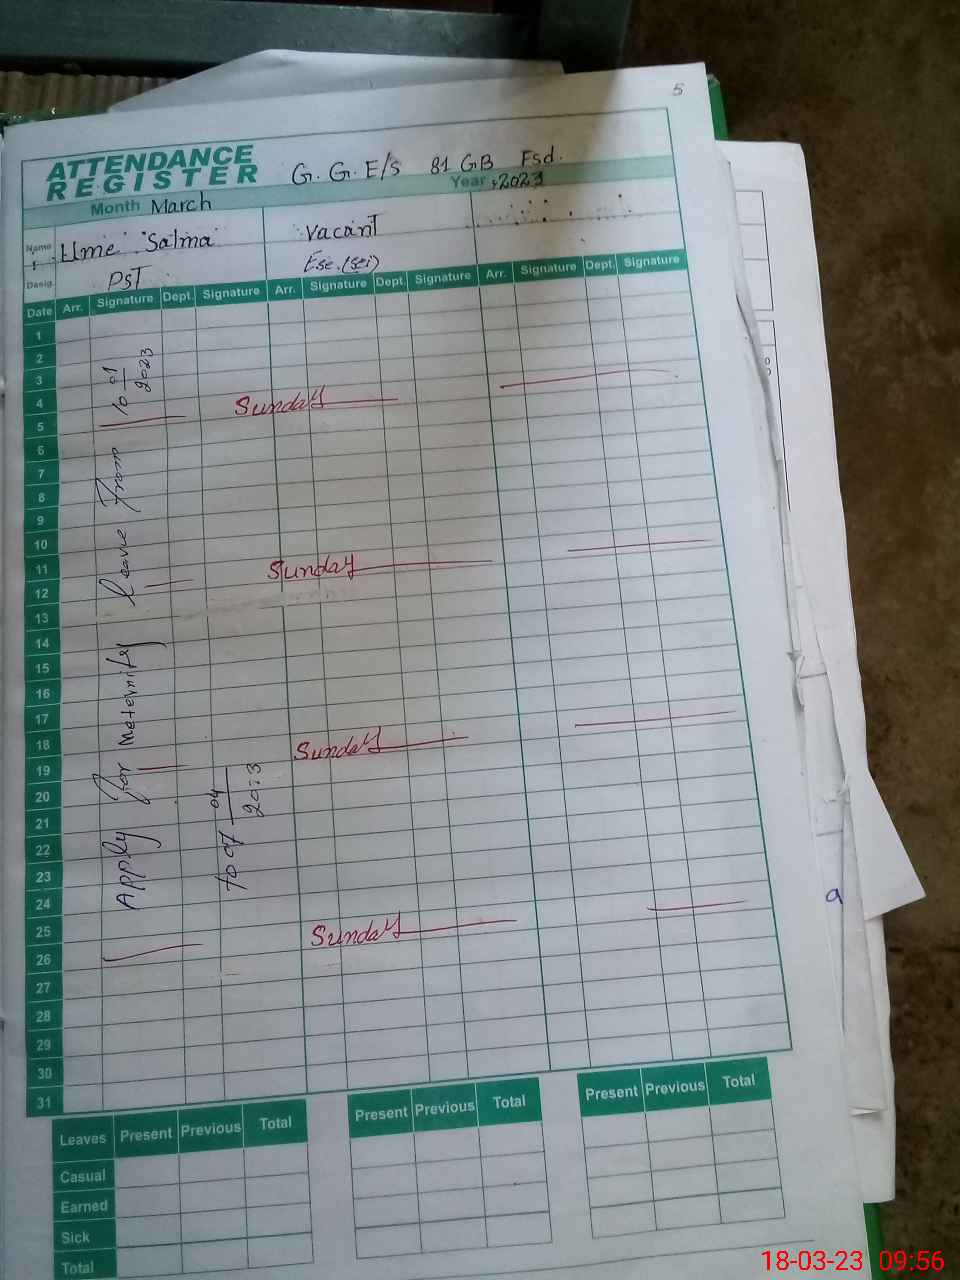 5
ATTENDANCE
REGISTER
G. G. E/S 81 GB Fsd.
Month March
Year 2023
Name Ume Salma Vacant
Desig. PST Ese.(sci)
Date Arr. Signature Dept. Signature Arr. Signature Dept. Signature Arr. Signature Dept. Signature
1
2
3
4
Sunday
5
6
7
8
9
10
11
Sunday
12
13
14
15
16
17
18
Sunday
19
20
21
22
23
24
25
Sunday
26
27
28
29
30
31
Apply for Maternity leave From 10 01 2023
to 07 04 2023
Leaves Present Previous Total Present Previous Total Present Previous Total
Casual
Earned
Sick
Total
a
18-03-23 09:56